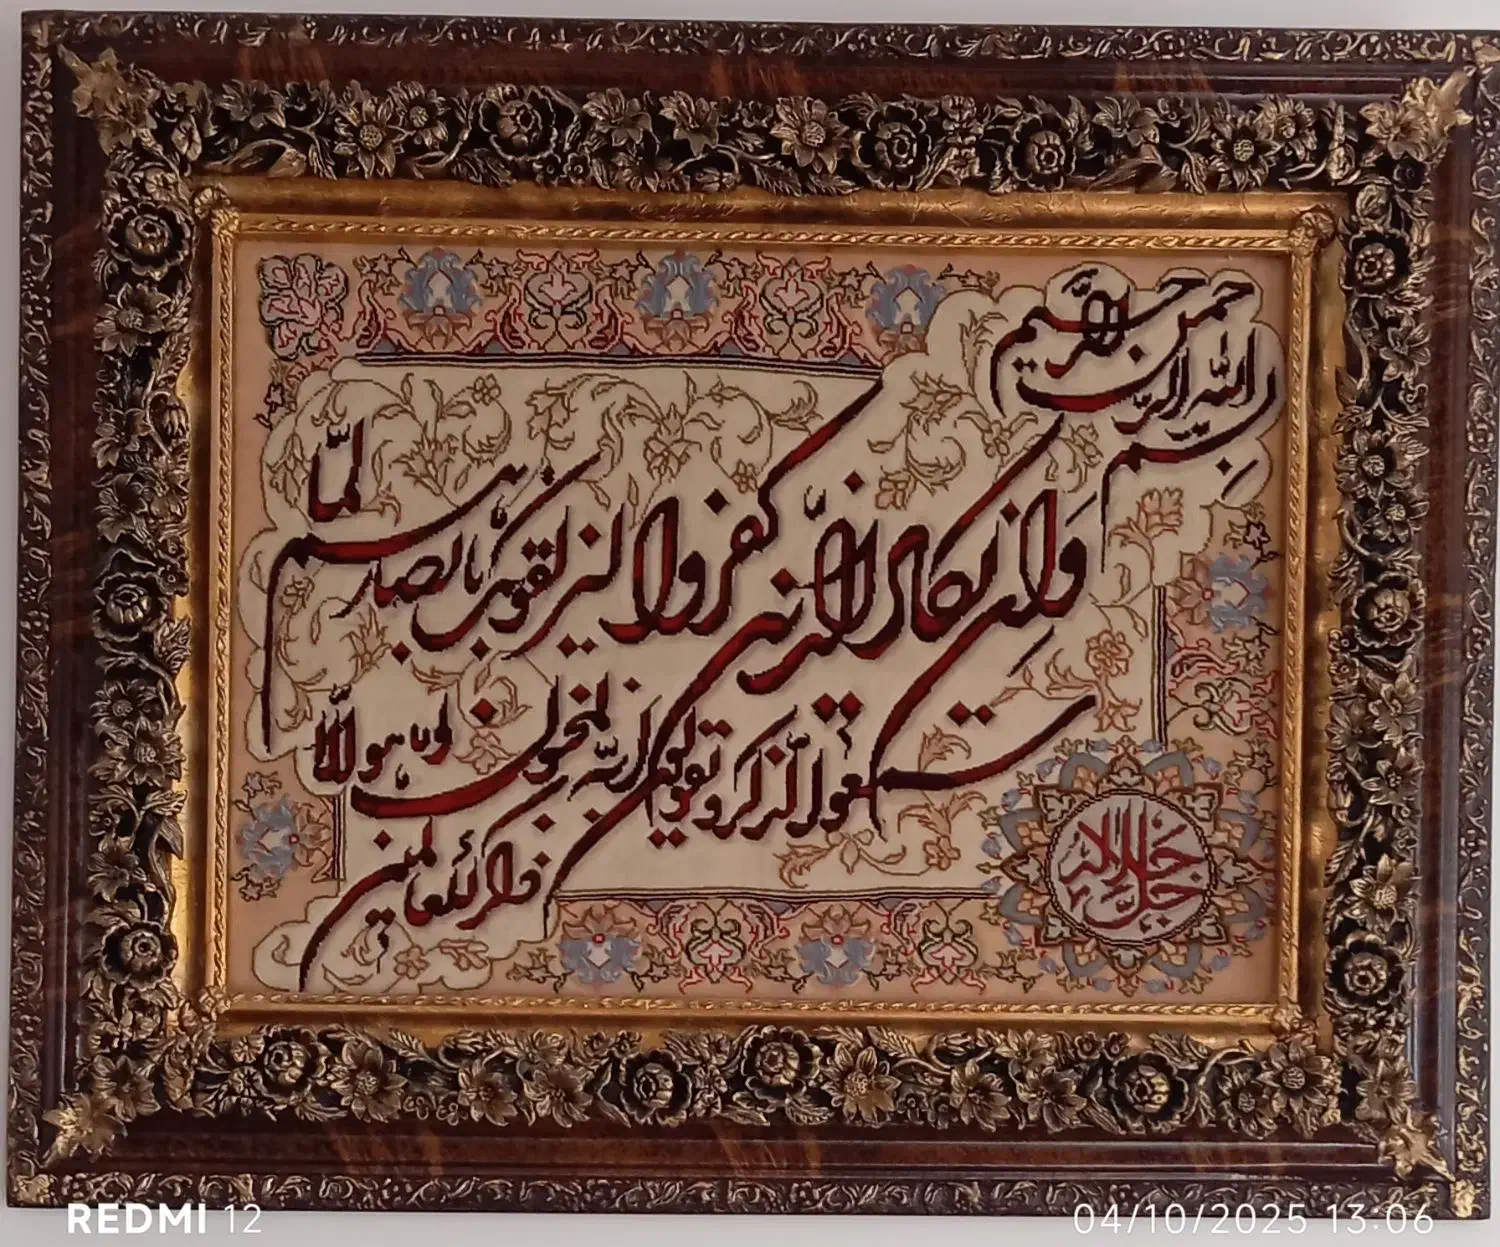 بسم الله الرحمن الرحيم
وان يكاد الذين كفروا ليزلقونك بابصارهم لما
سمعوا الذكر و يقولون انه لمجنون و ما هو الا
ذكر للعالمين
جل جلاله
REDMI 12
04/10/2025 13:06